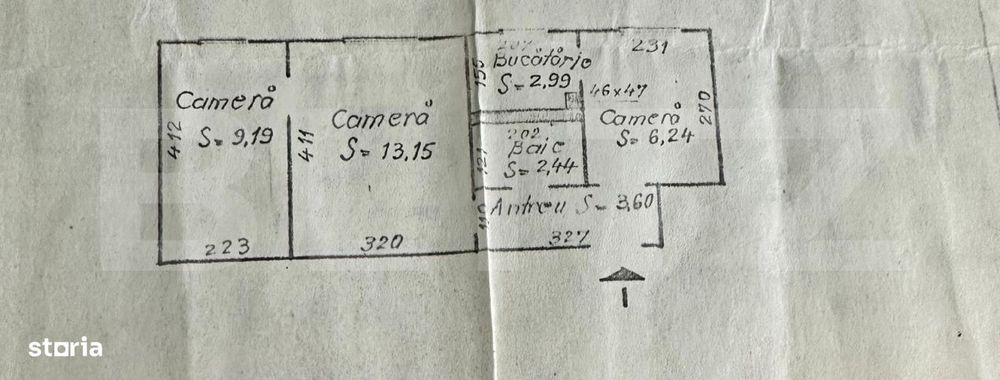 Cameră
S= 9,19
412
223
Cameră
S= 13,15
411
320
Bucătărie
S= 2,99
155
46x47
231
270
Cameră
S= 6,24
202
Baie
S= 2,44
121
Antreu S= 3,60
110
327
1
storia